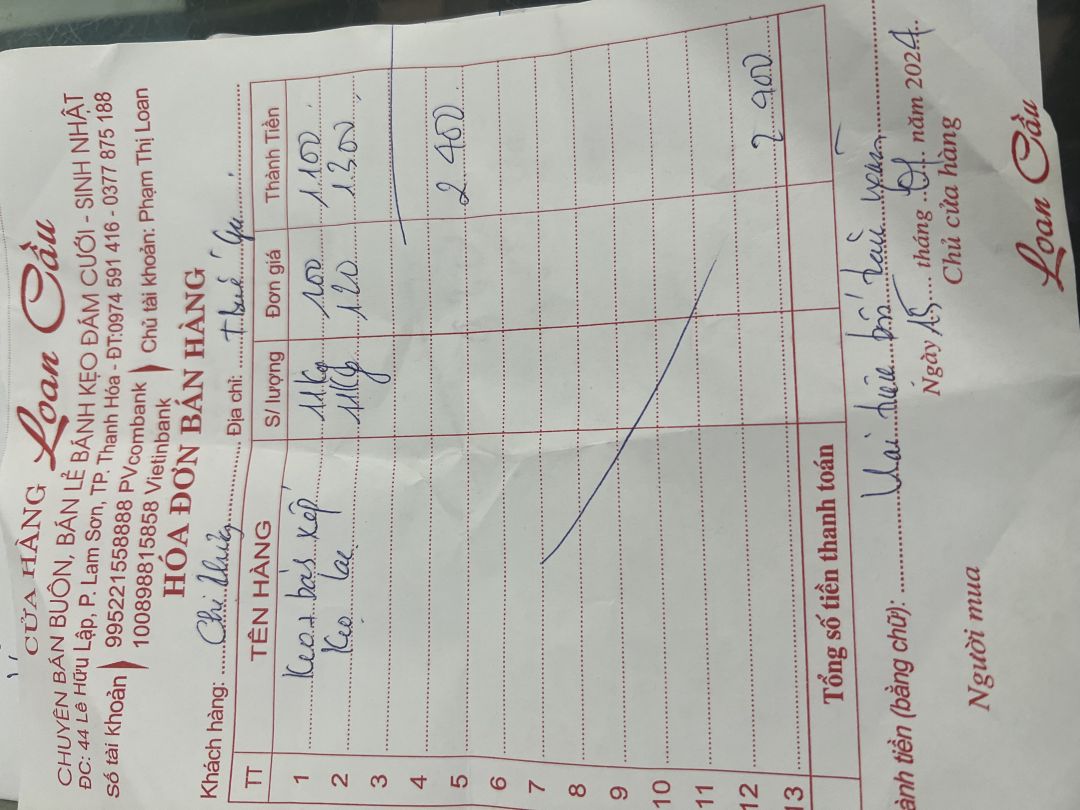 CỬA HÀNG Loan Cầu
CHUYÊN BÁN BUÔN, BÁN LẺ BÁNH KẸO ĐÁM CƯỚI - SINH NHẬT
ĐC: 44 Lê Hữu Lập, P. Lam Sơn, TP. Thanh Hóa - ĐT:0974 591 416 - 0377 875 188
số tài khoản 995221558888 PVcombank Chủ tài khoản: Phạm Thị Loan
100898815858 Vietinbank
HÓA ĐƠN BÁN HÀNG
Khách hàng: Chị Địa chỉ:
TT TÊN HÀNG S/ lượng Đơn giá Thành Tiền
1 xốp 11Kg 100 1.100
2 Kẹo lạc 11Kg 120 1.300
3
4
5 2 400
6
7
8
9
10
11
12 2 400
13
Tổng số tiền thanh toán
ành tiền (bằng chữ): Hai triệu bốn trăm
Ngày 15 tháng 01 năm 2024
Người mua Chủ cửa hàng
Loan Cầu